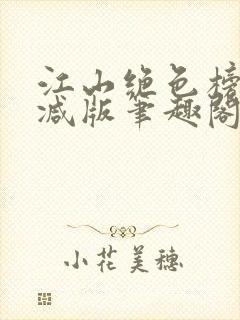 江山绝色榜
减版笔趣阁
小花美穗